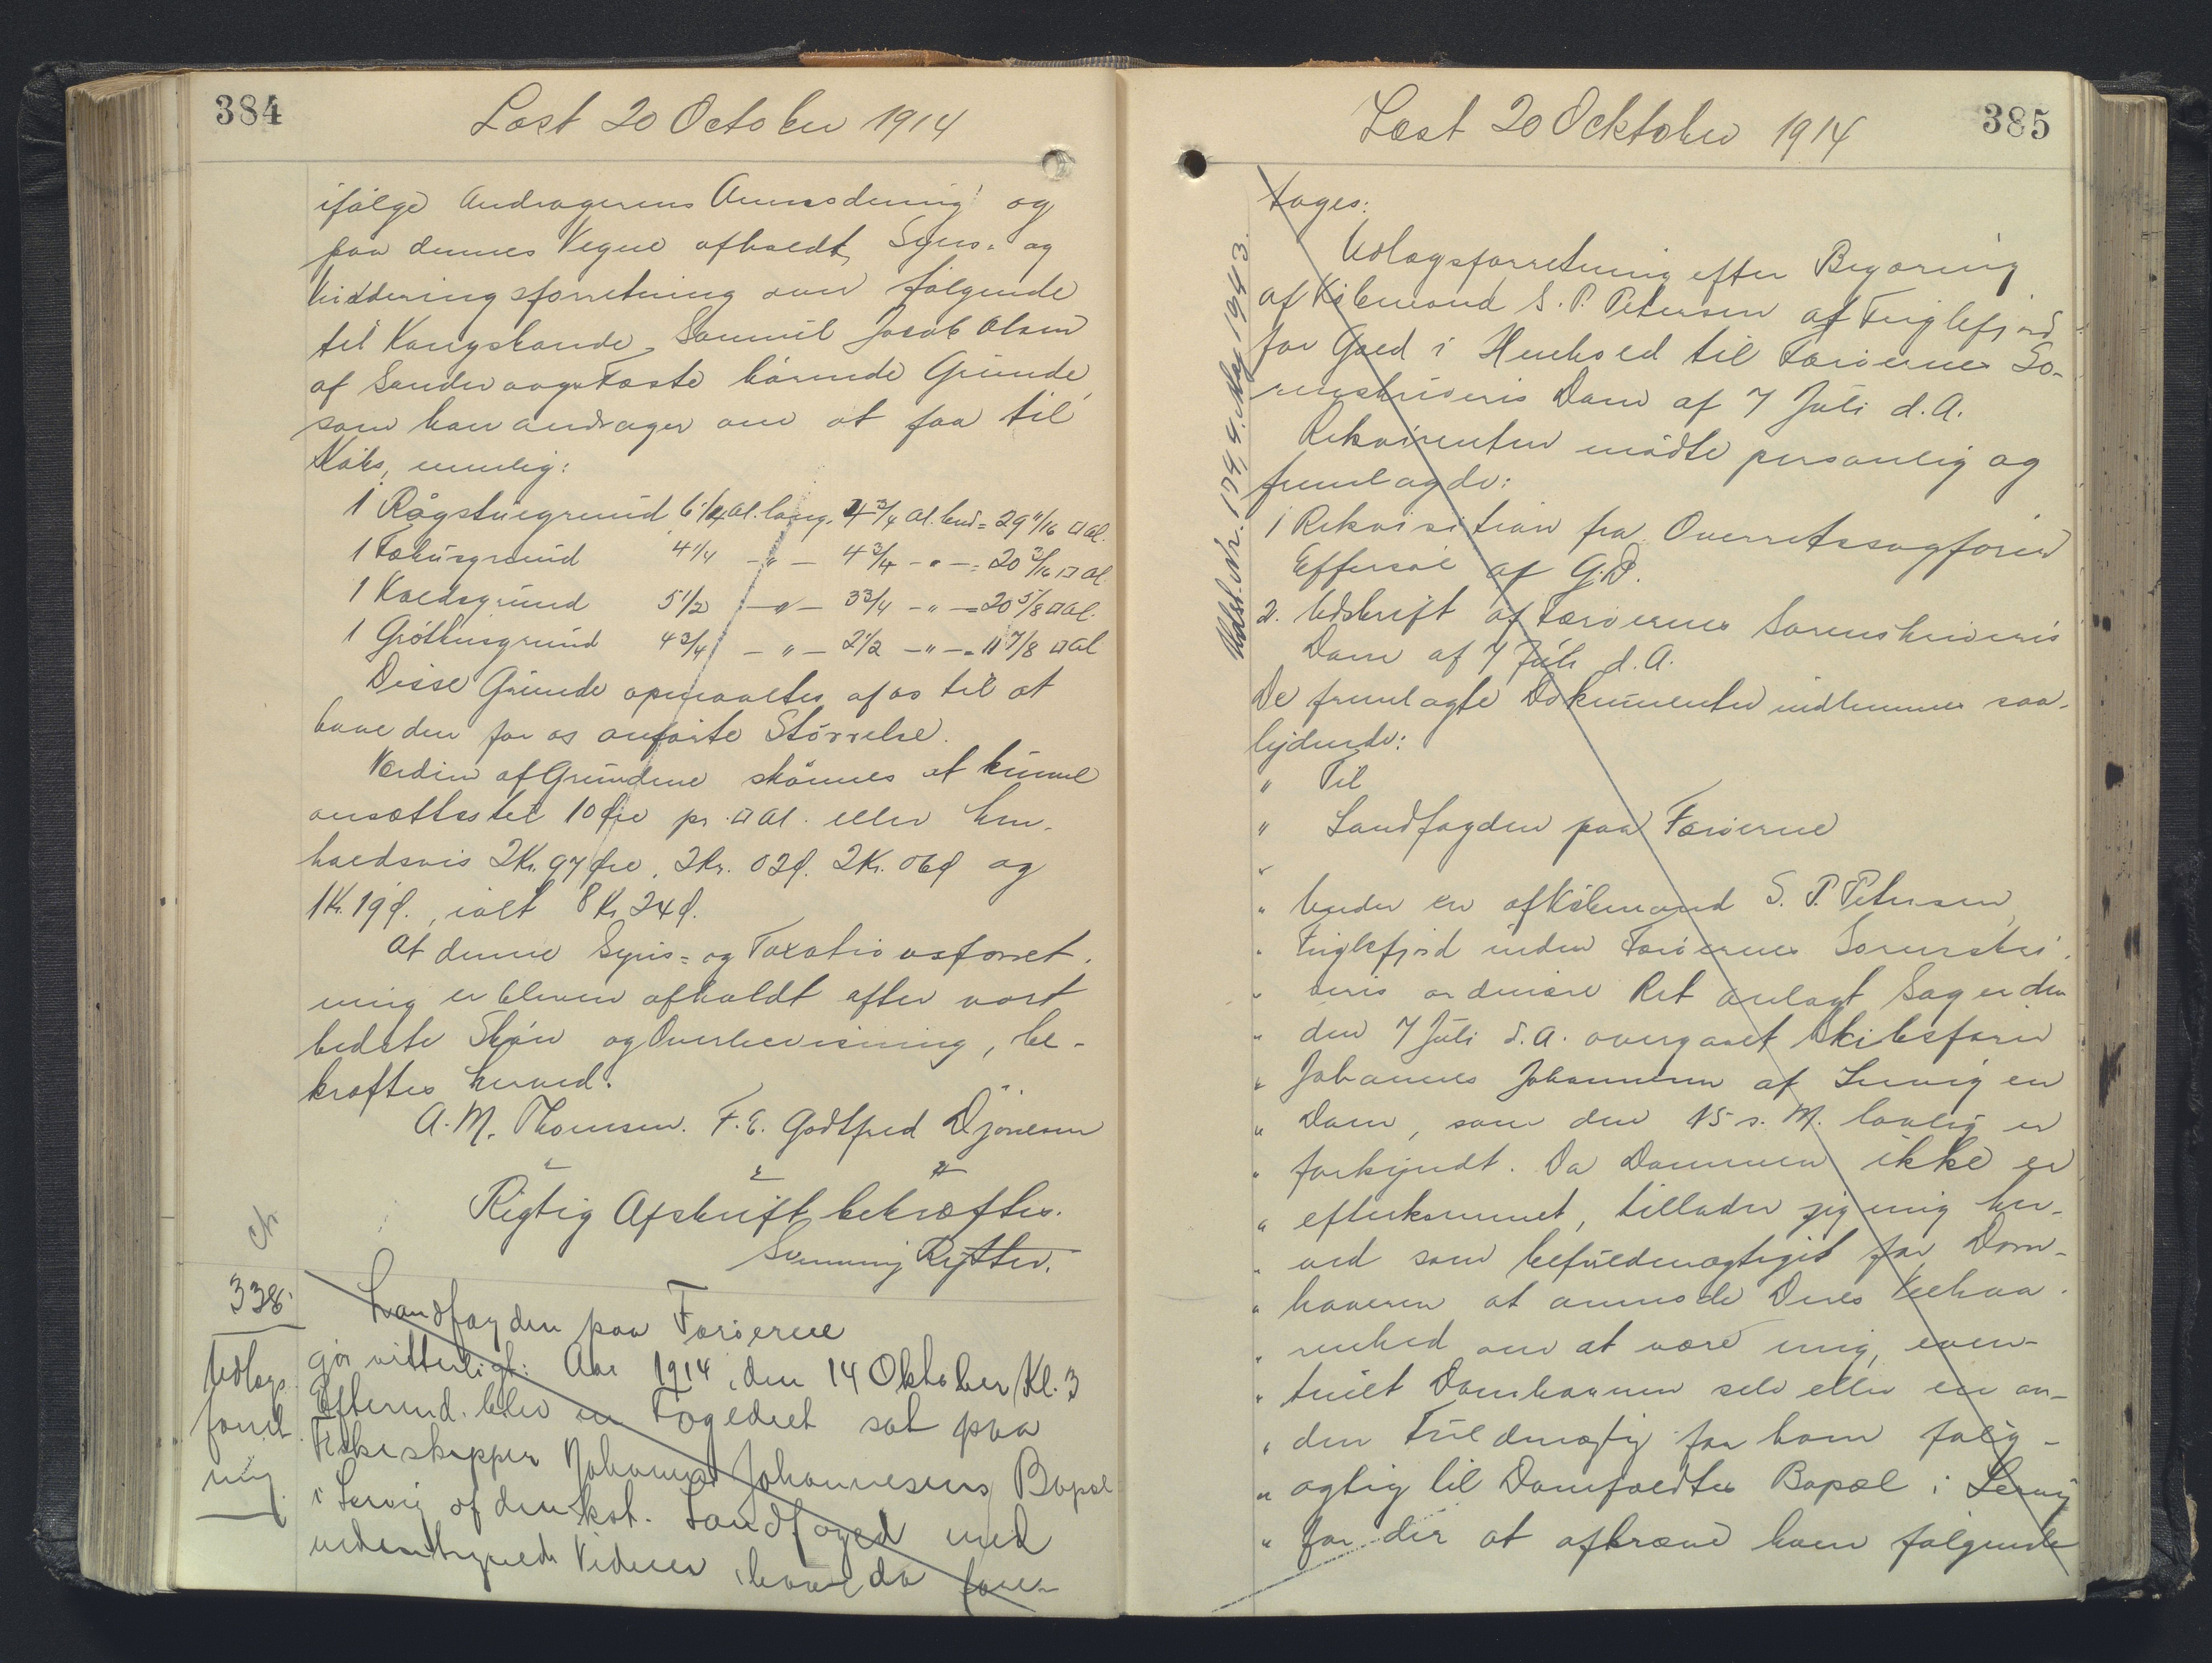 384
Læst 20 October 1914
ifølge Andragerens Anmodning og
paa dennes Vegne afholdt Syns- og
Vurderingsforretning over følgende
til Kongsbonde Samuel Jacob Olsen
af Sandevaags Fæste hørende Grunde,
som han andrager om at faa til
Købs, nemlig:
1 Røgstuegrund 6 1/4 Al. lang, 4 3/4 Al. bred = 29 11/16 □ Al.
1 Fæhusgrund 4 1/4 — " — 4 3/4 — " — = 20 3/16 □ Al.
1 Kaalsgrund 5 1/2 — " — 3 3/4 — " — = 20 5/8 □ Al.
1 Gróthusgrund 4 3/4 — " — 2 1/2 — " — = 11 7/8 □ Al
Disse Grunde opmaaltes af os til at
have den for os anførte Størrelse.
Værdien af Grundene skønnes at kunne
ansættes til 10 Øre pr. □ Al. eller hen-
holdsvis 2 Kr. 97 Øre, 2 Kr. 02 Ø. 2 Kr. 06 Ø og
1 Kr. 19 Ø., ialt 8 Kr. 24 Ø.
At denne Syns- og Taxationsforret-
ning er bleven afholdt efter vort
bedste Skøn og Overbevisning, be-
kræftes herved.
A. M. Thomsen. F. E. Godtfred Djónesen
Rigtig Afskrift bekræftes.
Svenning Rytter.
338.
Udlægs
forret
ning.
Landfogden paa Færøerne
gør vitterligt: Aar 1914, den 14 Oktober Kl. 3
Eftermd. blev en Fogedret sat paa
Fiskeskipper Johannes Johannesens Bopæl
i Lervig af den kst. Landfoged med
undertegnede Vidner, hvor da fore-
385
Læst 20 Ocktober 1914
tages:
Udlægsforretning efter Begæring
af Købmand S. P. Petersen af Fuglefjord
for Gæld i Henhold til Færøernes So-
renskriveris Dom af 7 Juli d. A.
Rekvirenten mødte personlig og
fremlagde:
1 Rekvisition fra Overretssagfører
Effersøe af G. D.
2. Udskrift af Færøernes Sorenskriveris
Dom af 7 Juli d. A.
De fremlagte Dokumenter indlemmes saa-
lydende:
" Til
" Landfogden paa Færøerne
"
" Under en af Købmand S. P. Petersen,
" Fuglefjord under Færøernes Sorenskri-
" veris ordinære Ret anlagt Sag er der
" den 7 Juli d. A. overgaaet Skibsfører
" Johannes Johannesen af Lervig en
" Dom, som den 15 s. M. lovlig er
" forkyndt. Da Dommen ikke er
" efterkommet, tillader jeg mig her-
" ved som befuldmægtiget for Dom-
" haveren at anmode Deres Velbaa-
" renhed om at være mig, even-
" tuelt Domhaveren selv eller en an-
" den Fuldmægtig for ham følg-
" agtig til Domfældtes Bopæl i Lervig
" for der at afkræve ham følgende
Udsl. Nr. 174, 4. May 1943.